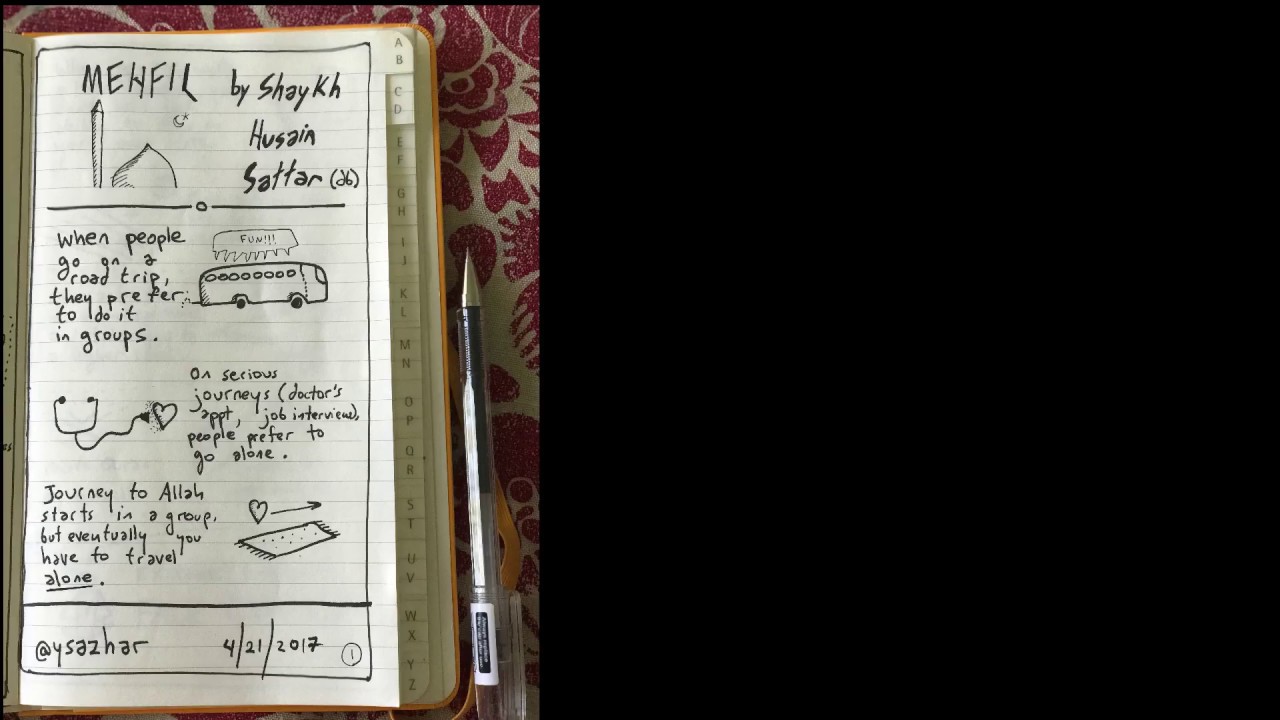 MEHFIL by Shaykh
Husain
Sattar (db)
When people
go on a
road trip,
they prefer
to do it
in groups.
FUN!!!
On serious
journeys (doctor's
appt, job interview),
people prefer to
go alone.
Journey to Allah
starts in a group,
but eventually you
have to travel
alone.
@ysazhar 4/21/2017 1
A
B
C
D
E
F
G
H
I
J
K
L
M
N
O
P
Q
R
S
T
U
V
W
X
Y
Z